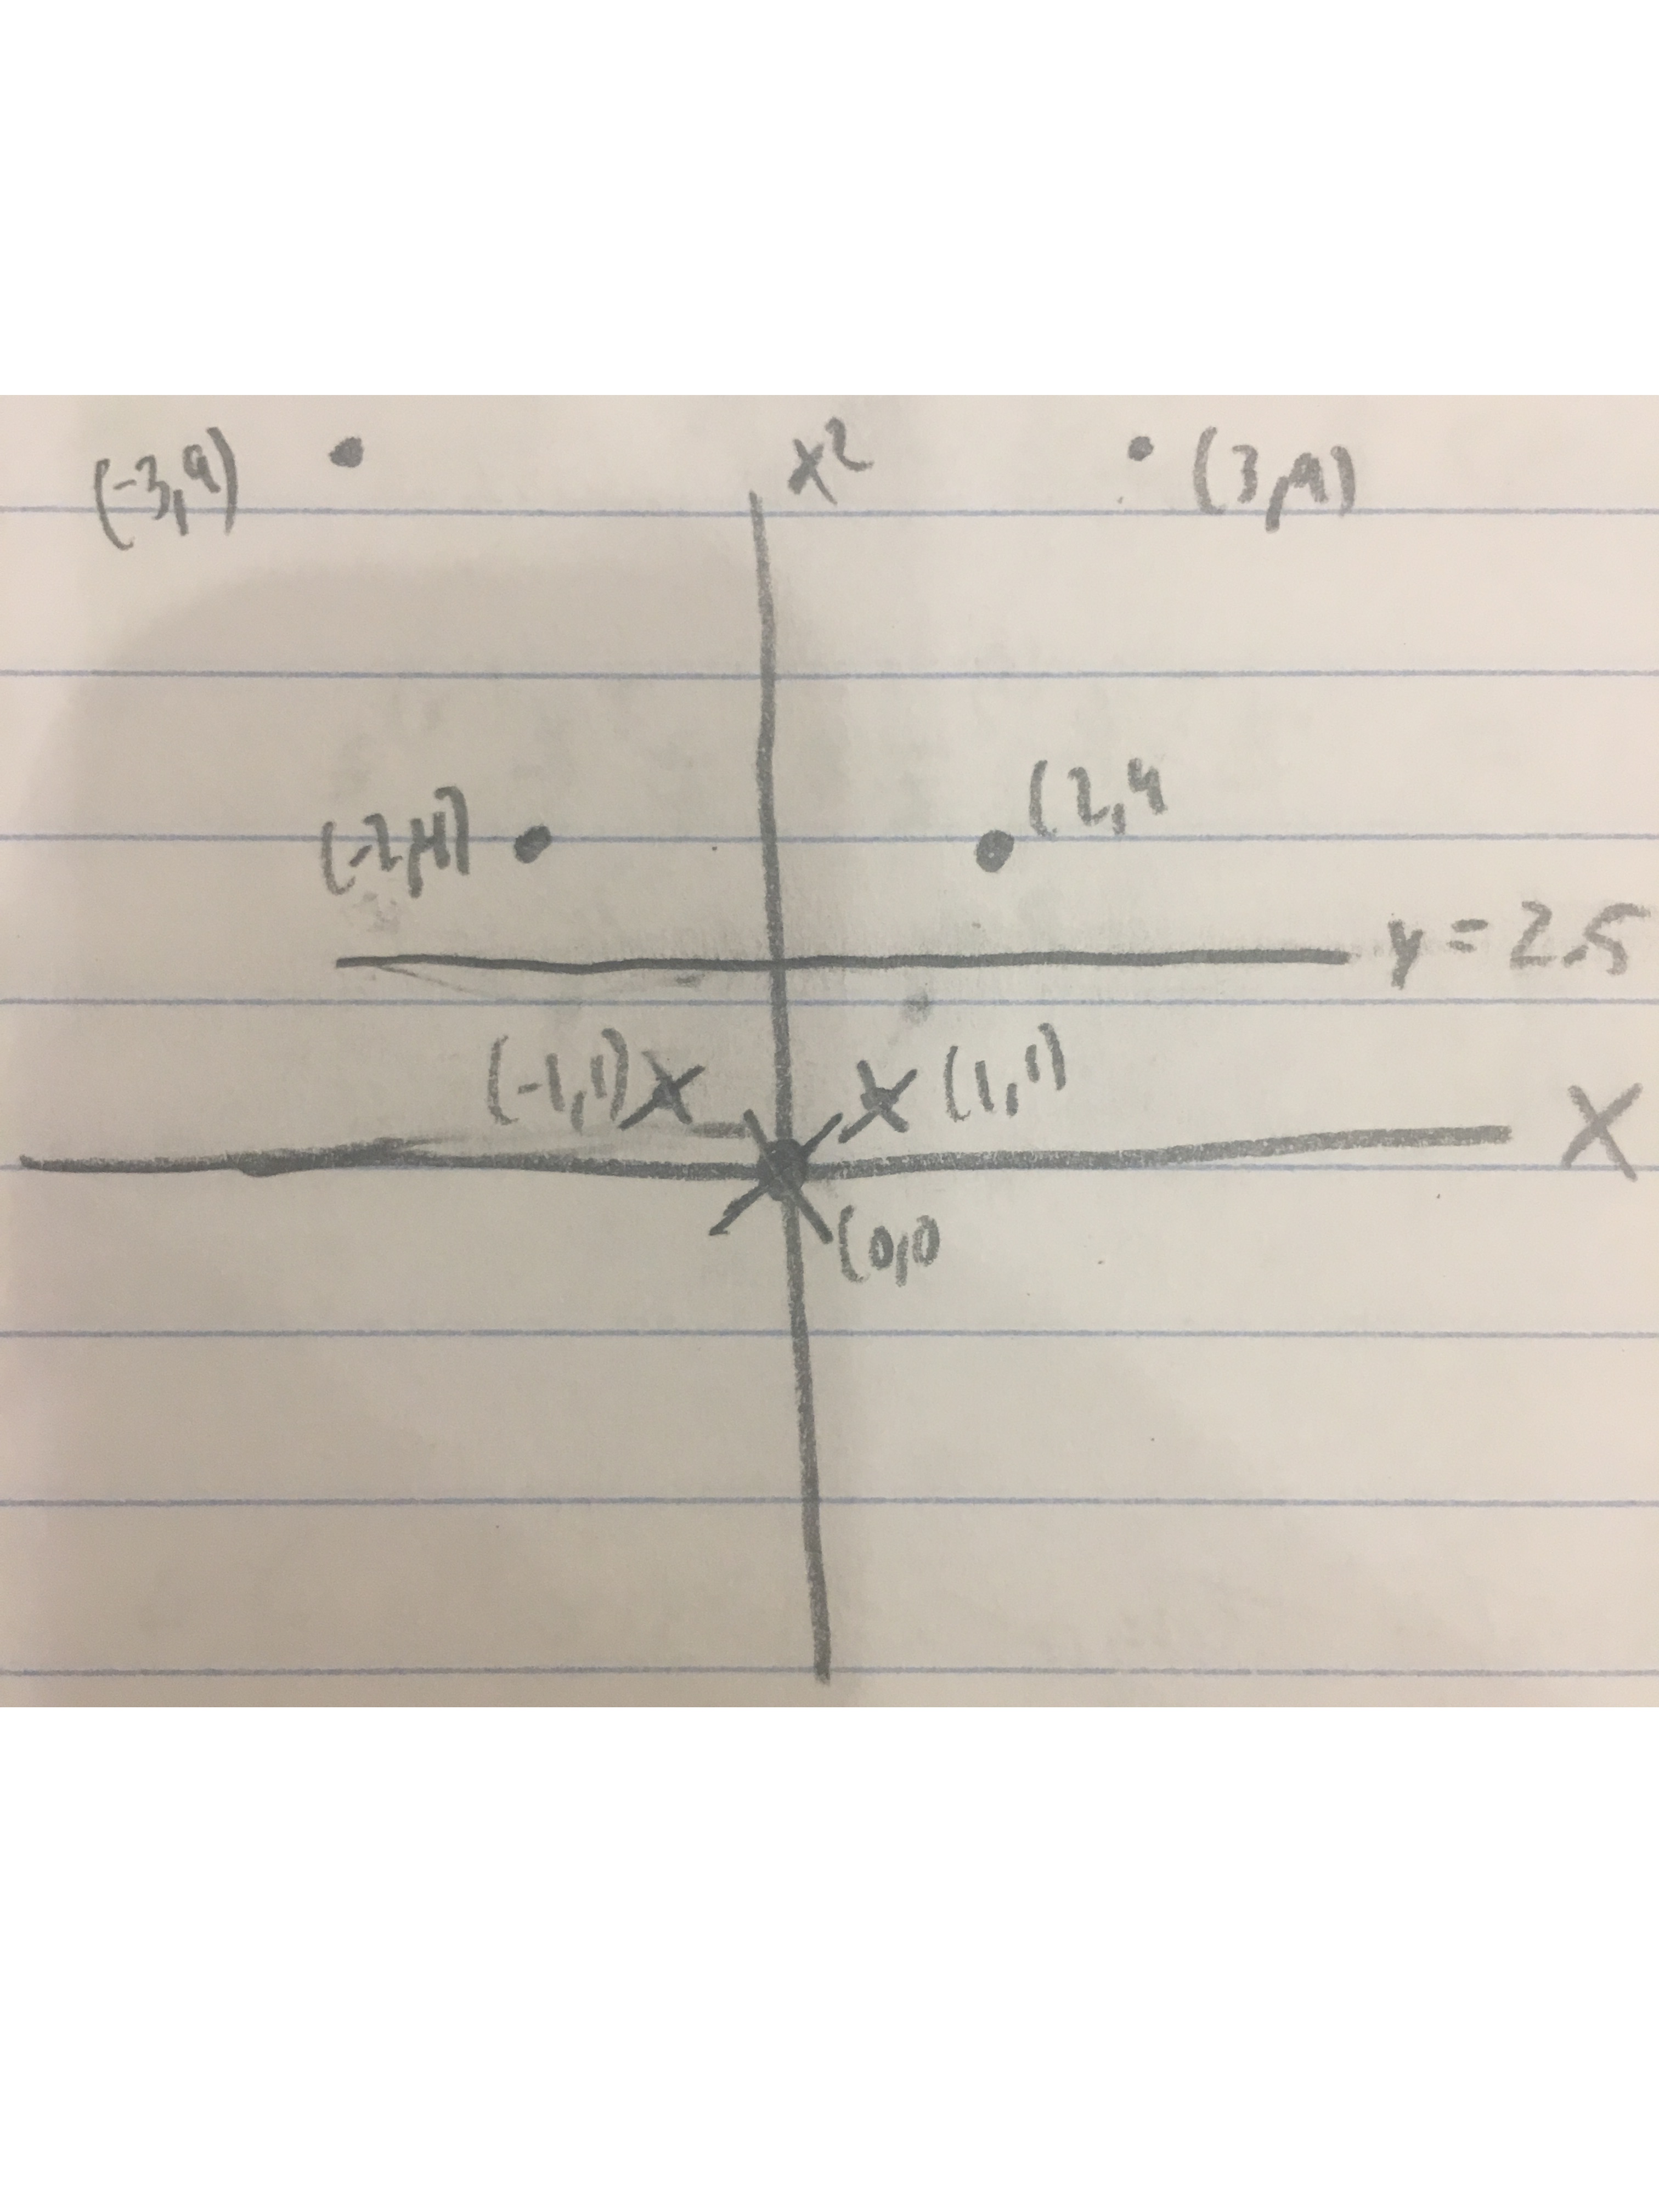 (-3,9)
x²
(3,9)
(-2,4)
(2,4
y = 2.5
(-1,1)
(1,1)
X
(0,0